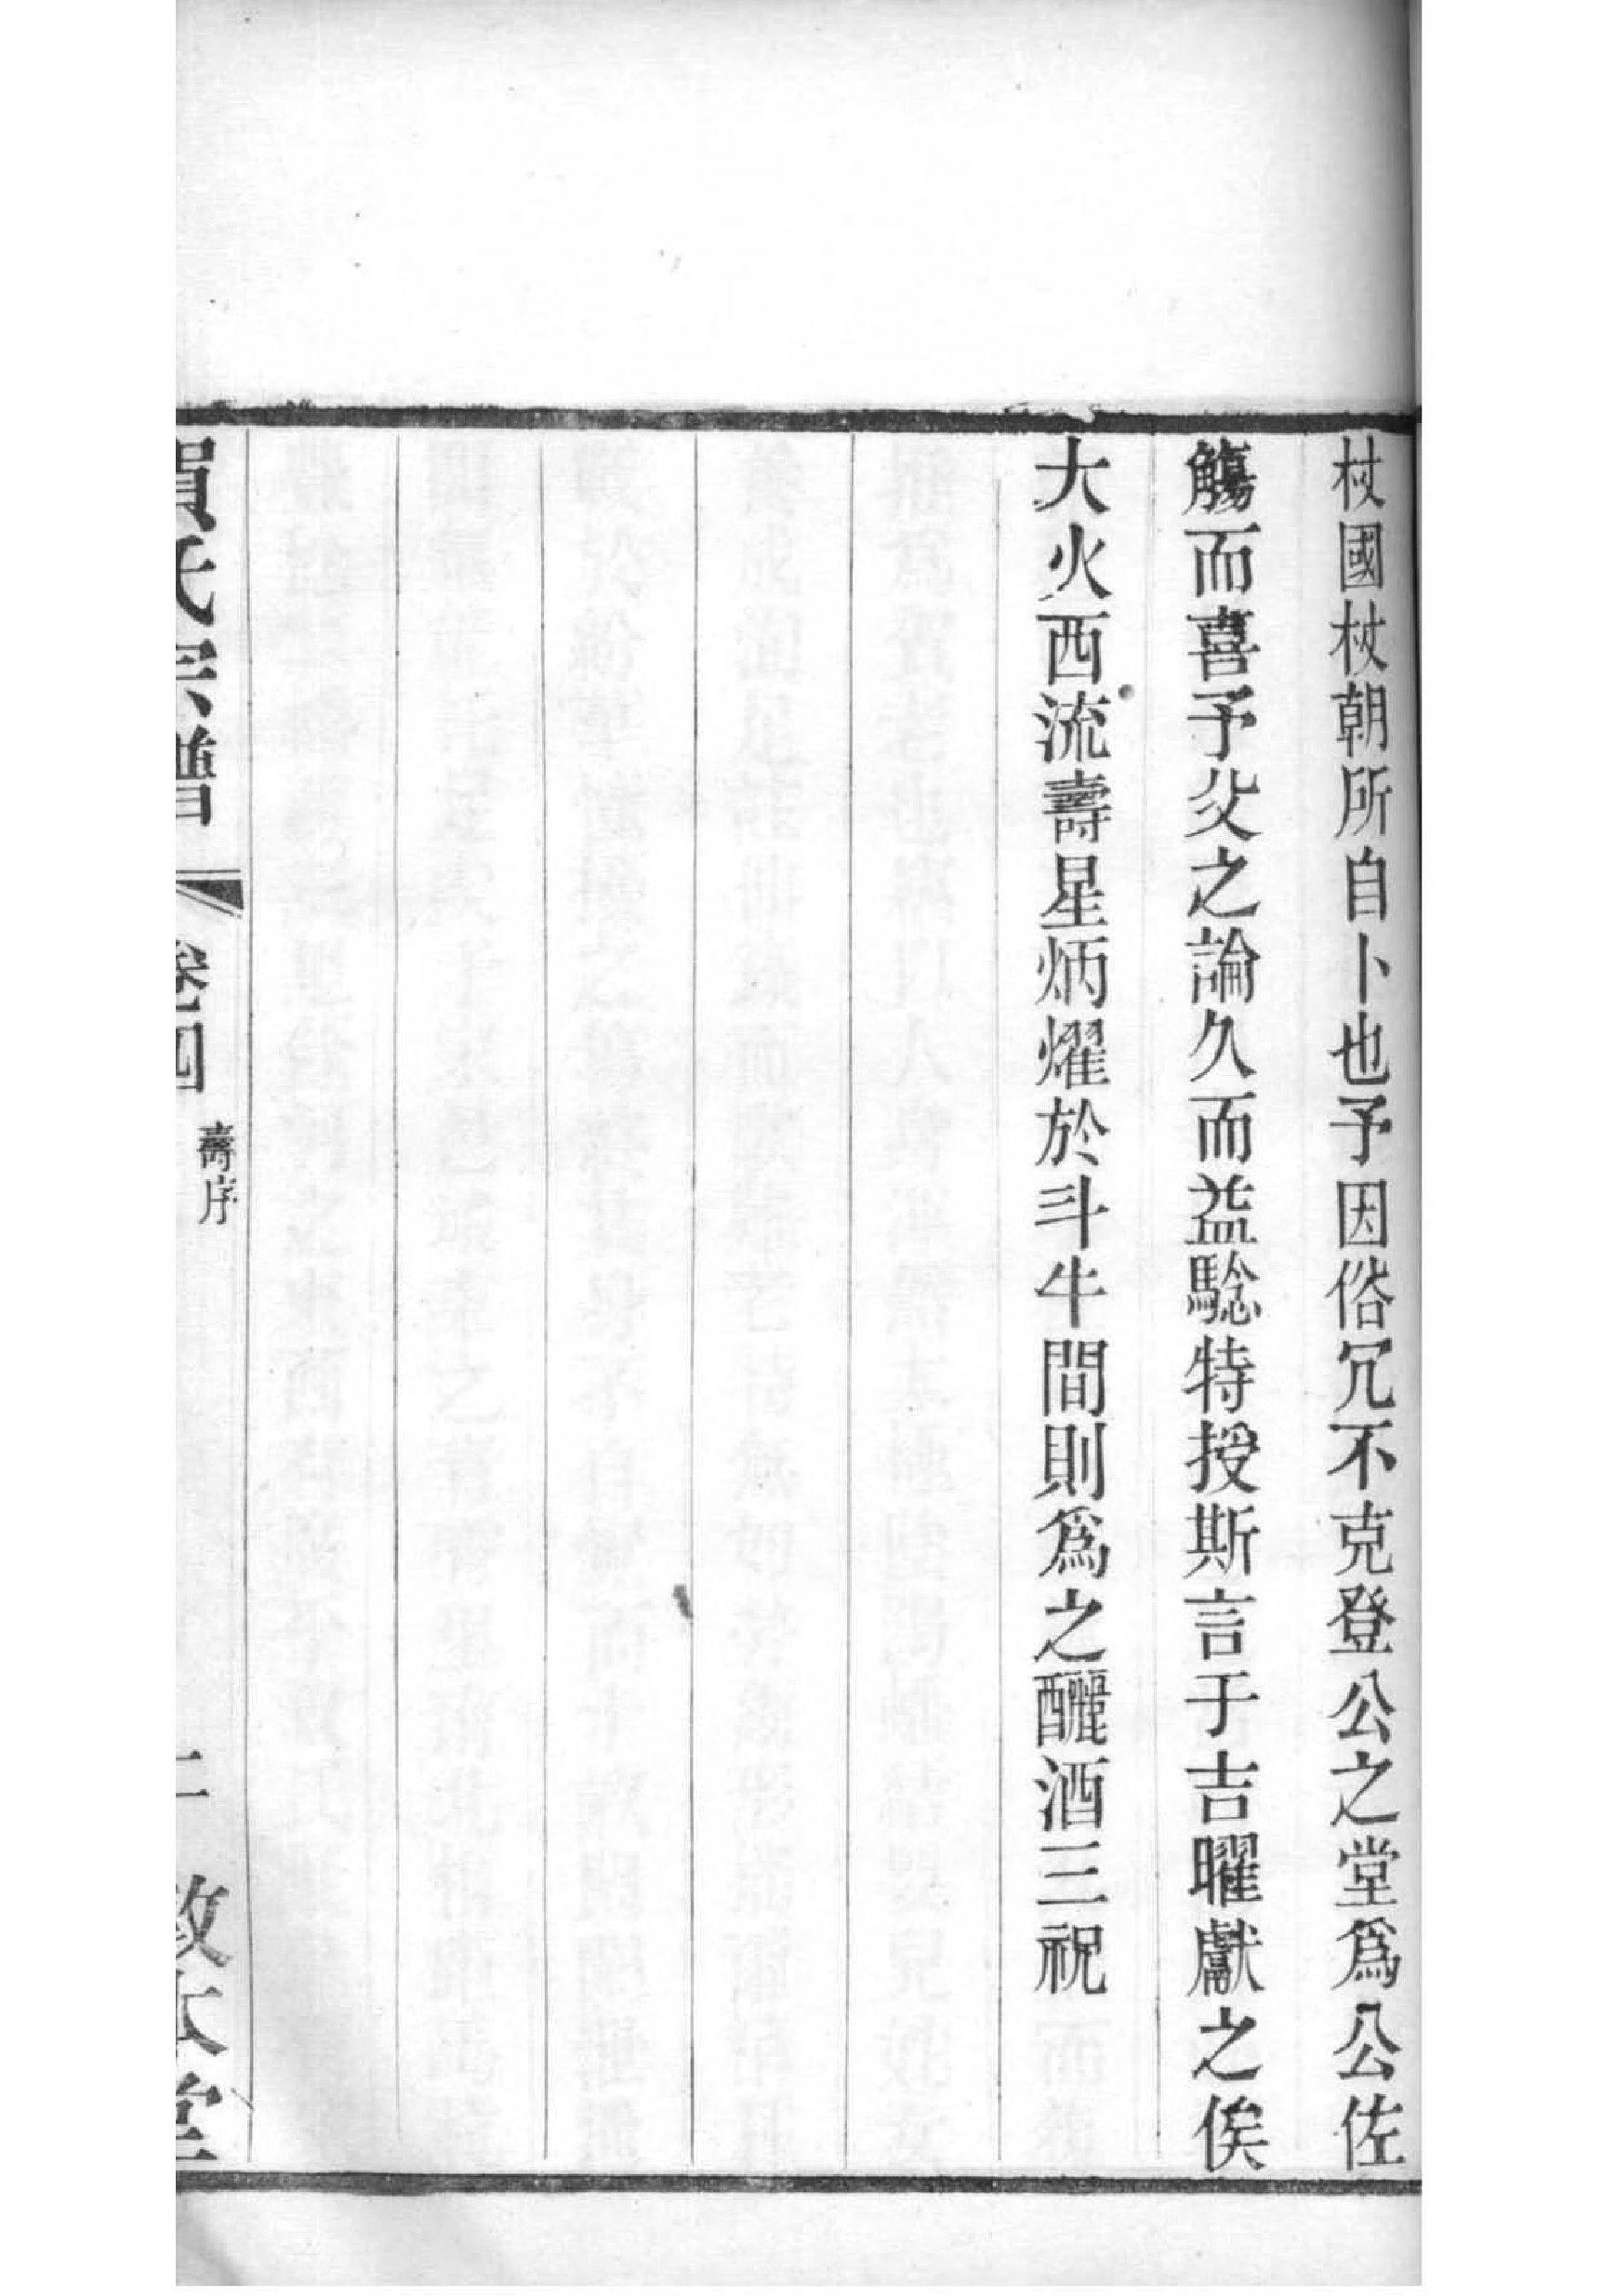 杖國杖朝所自卜也予因俗冗不克登公之堂爲公佐
觴而喜予父之論久而益驗特授斯言于吉曜獻之俟
大火西流壽星炳燿於斗牛間則爲之釃酒三祝
氏宗譜
卷四
壽序
二
堂